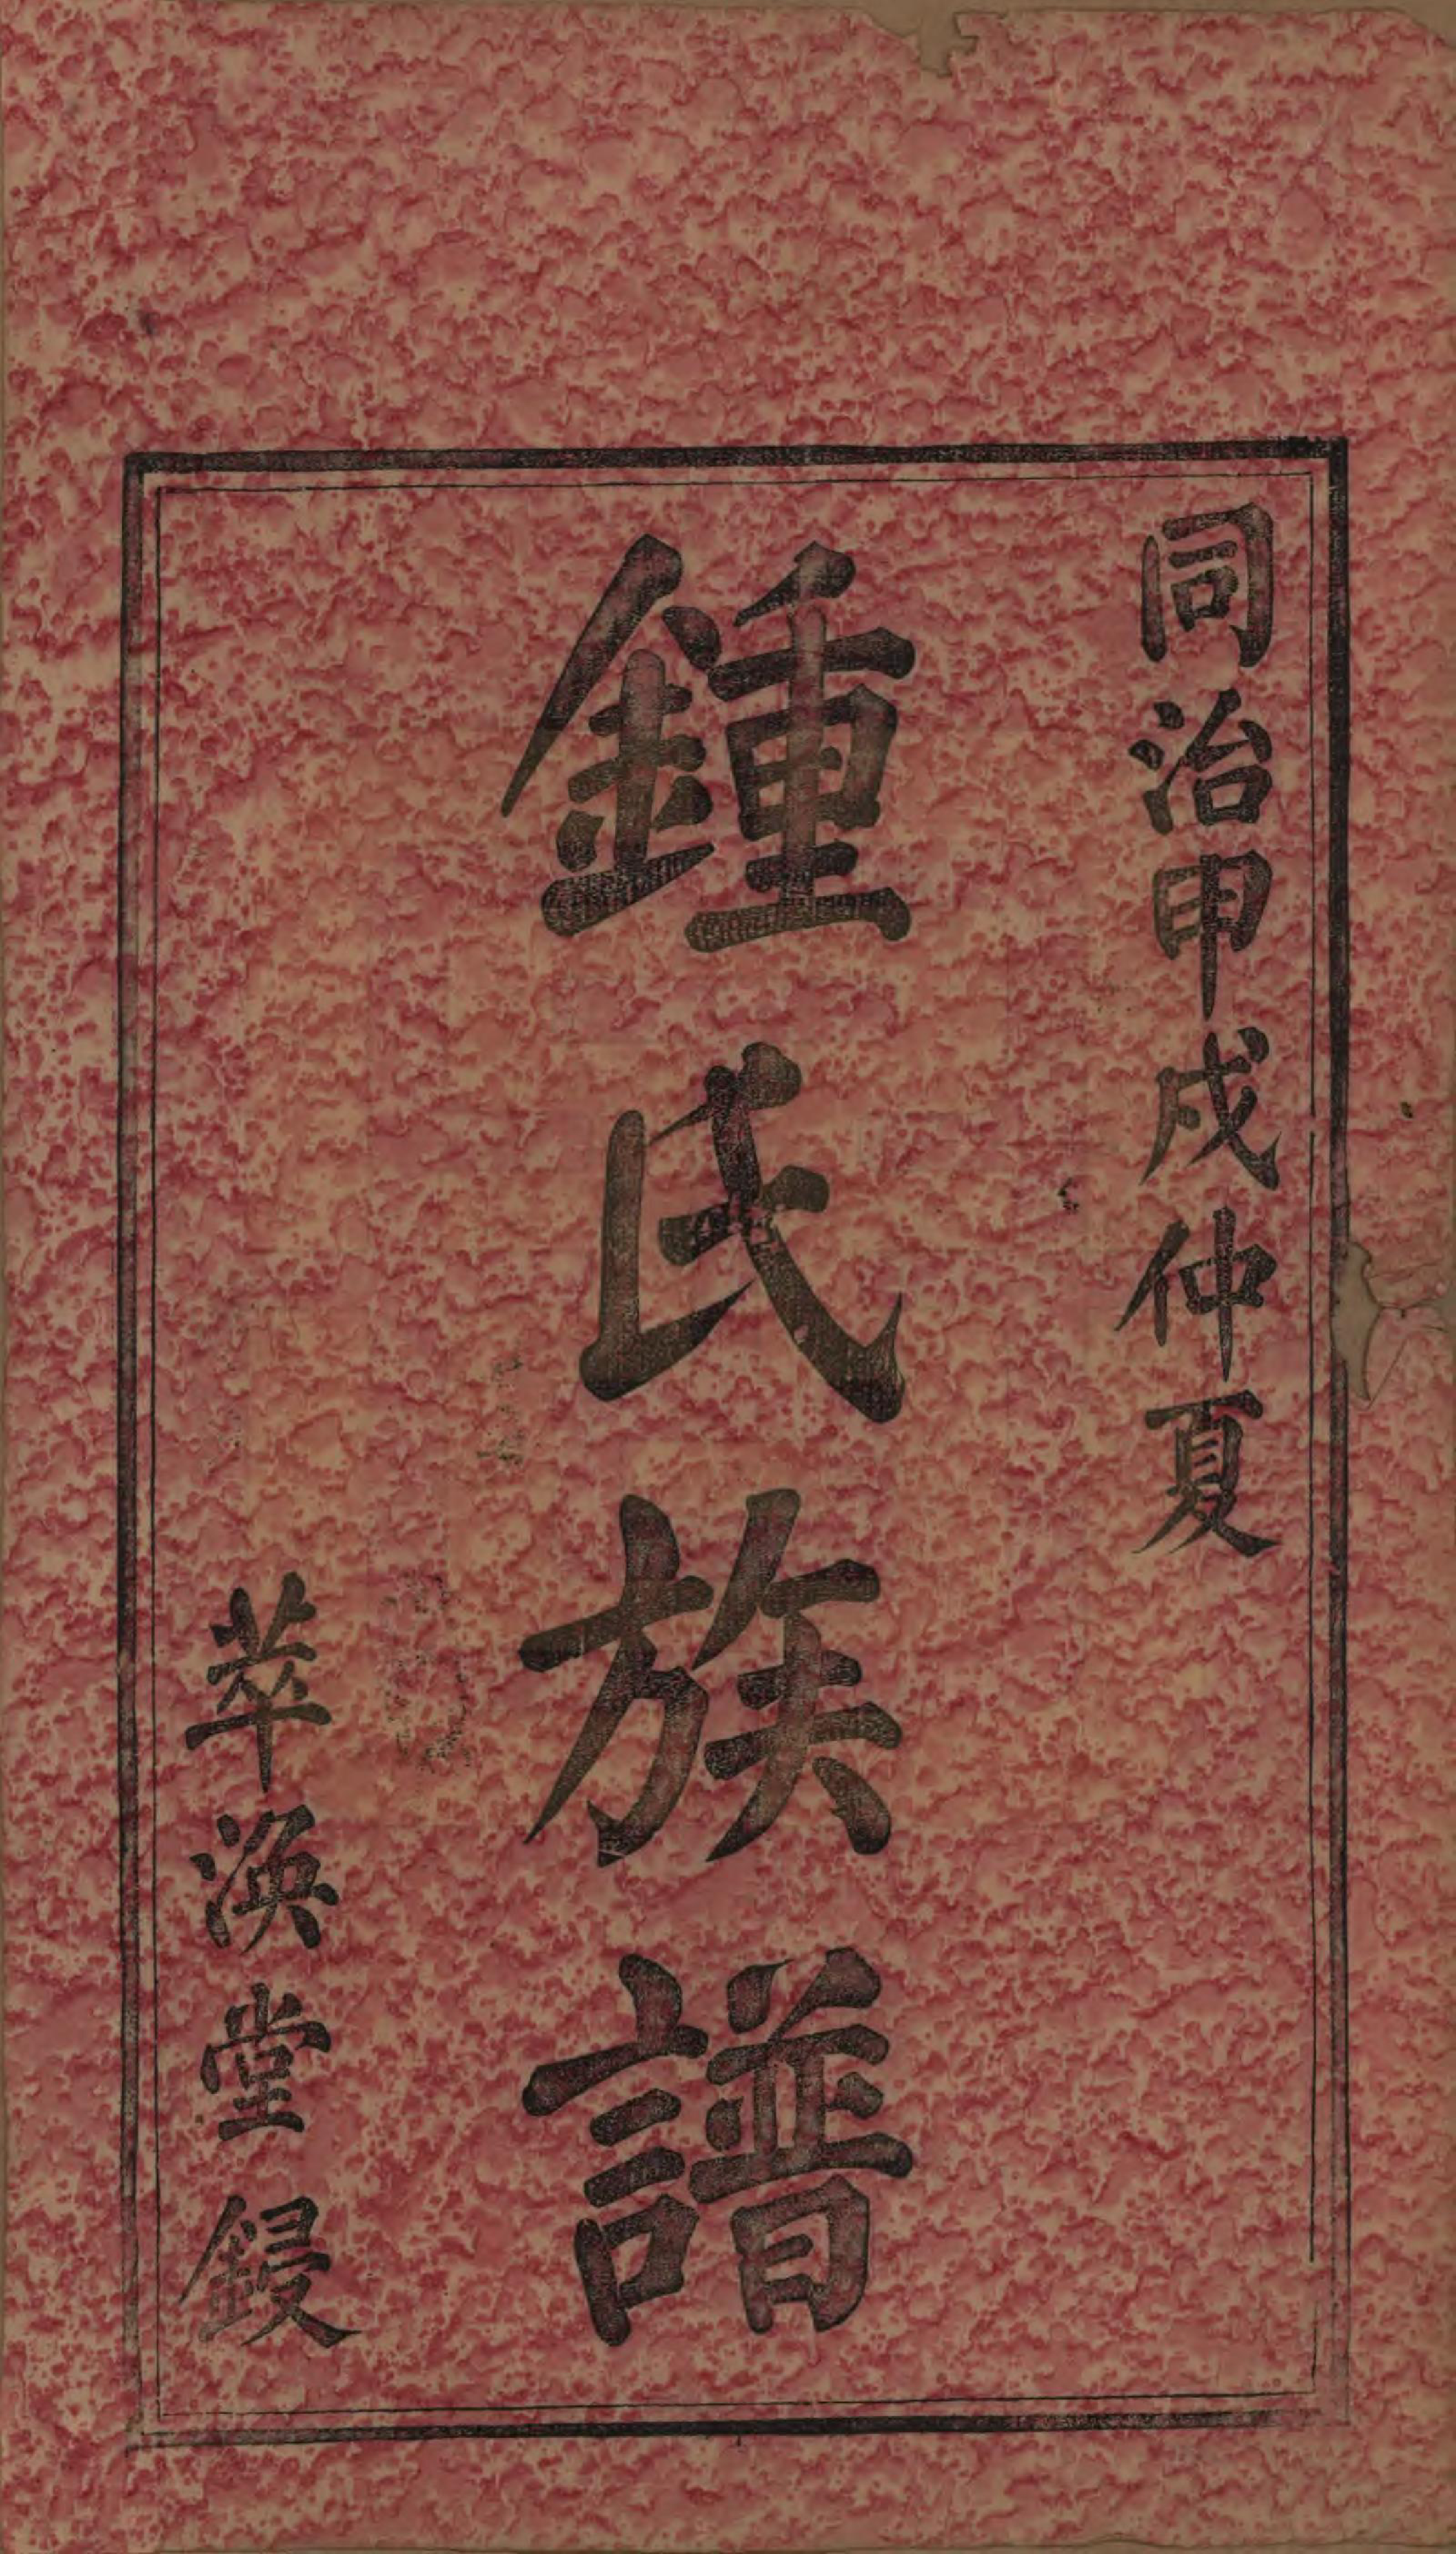 同治甲戌仲夏
鍾氏族譜
萃渙堂鋟